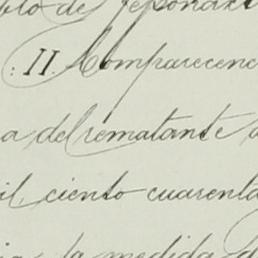 blo de
: II. Comparecenc
a del rematante a
il ciento cuarenta
la medida d